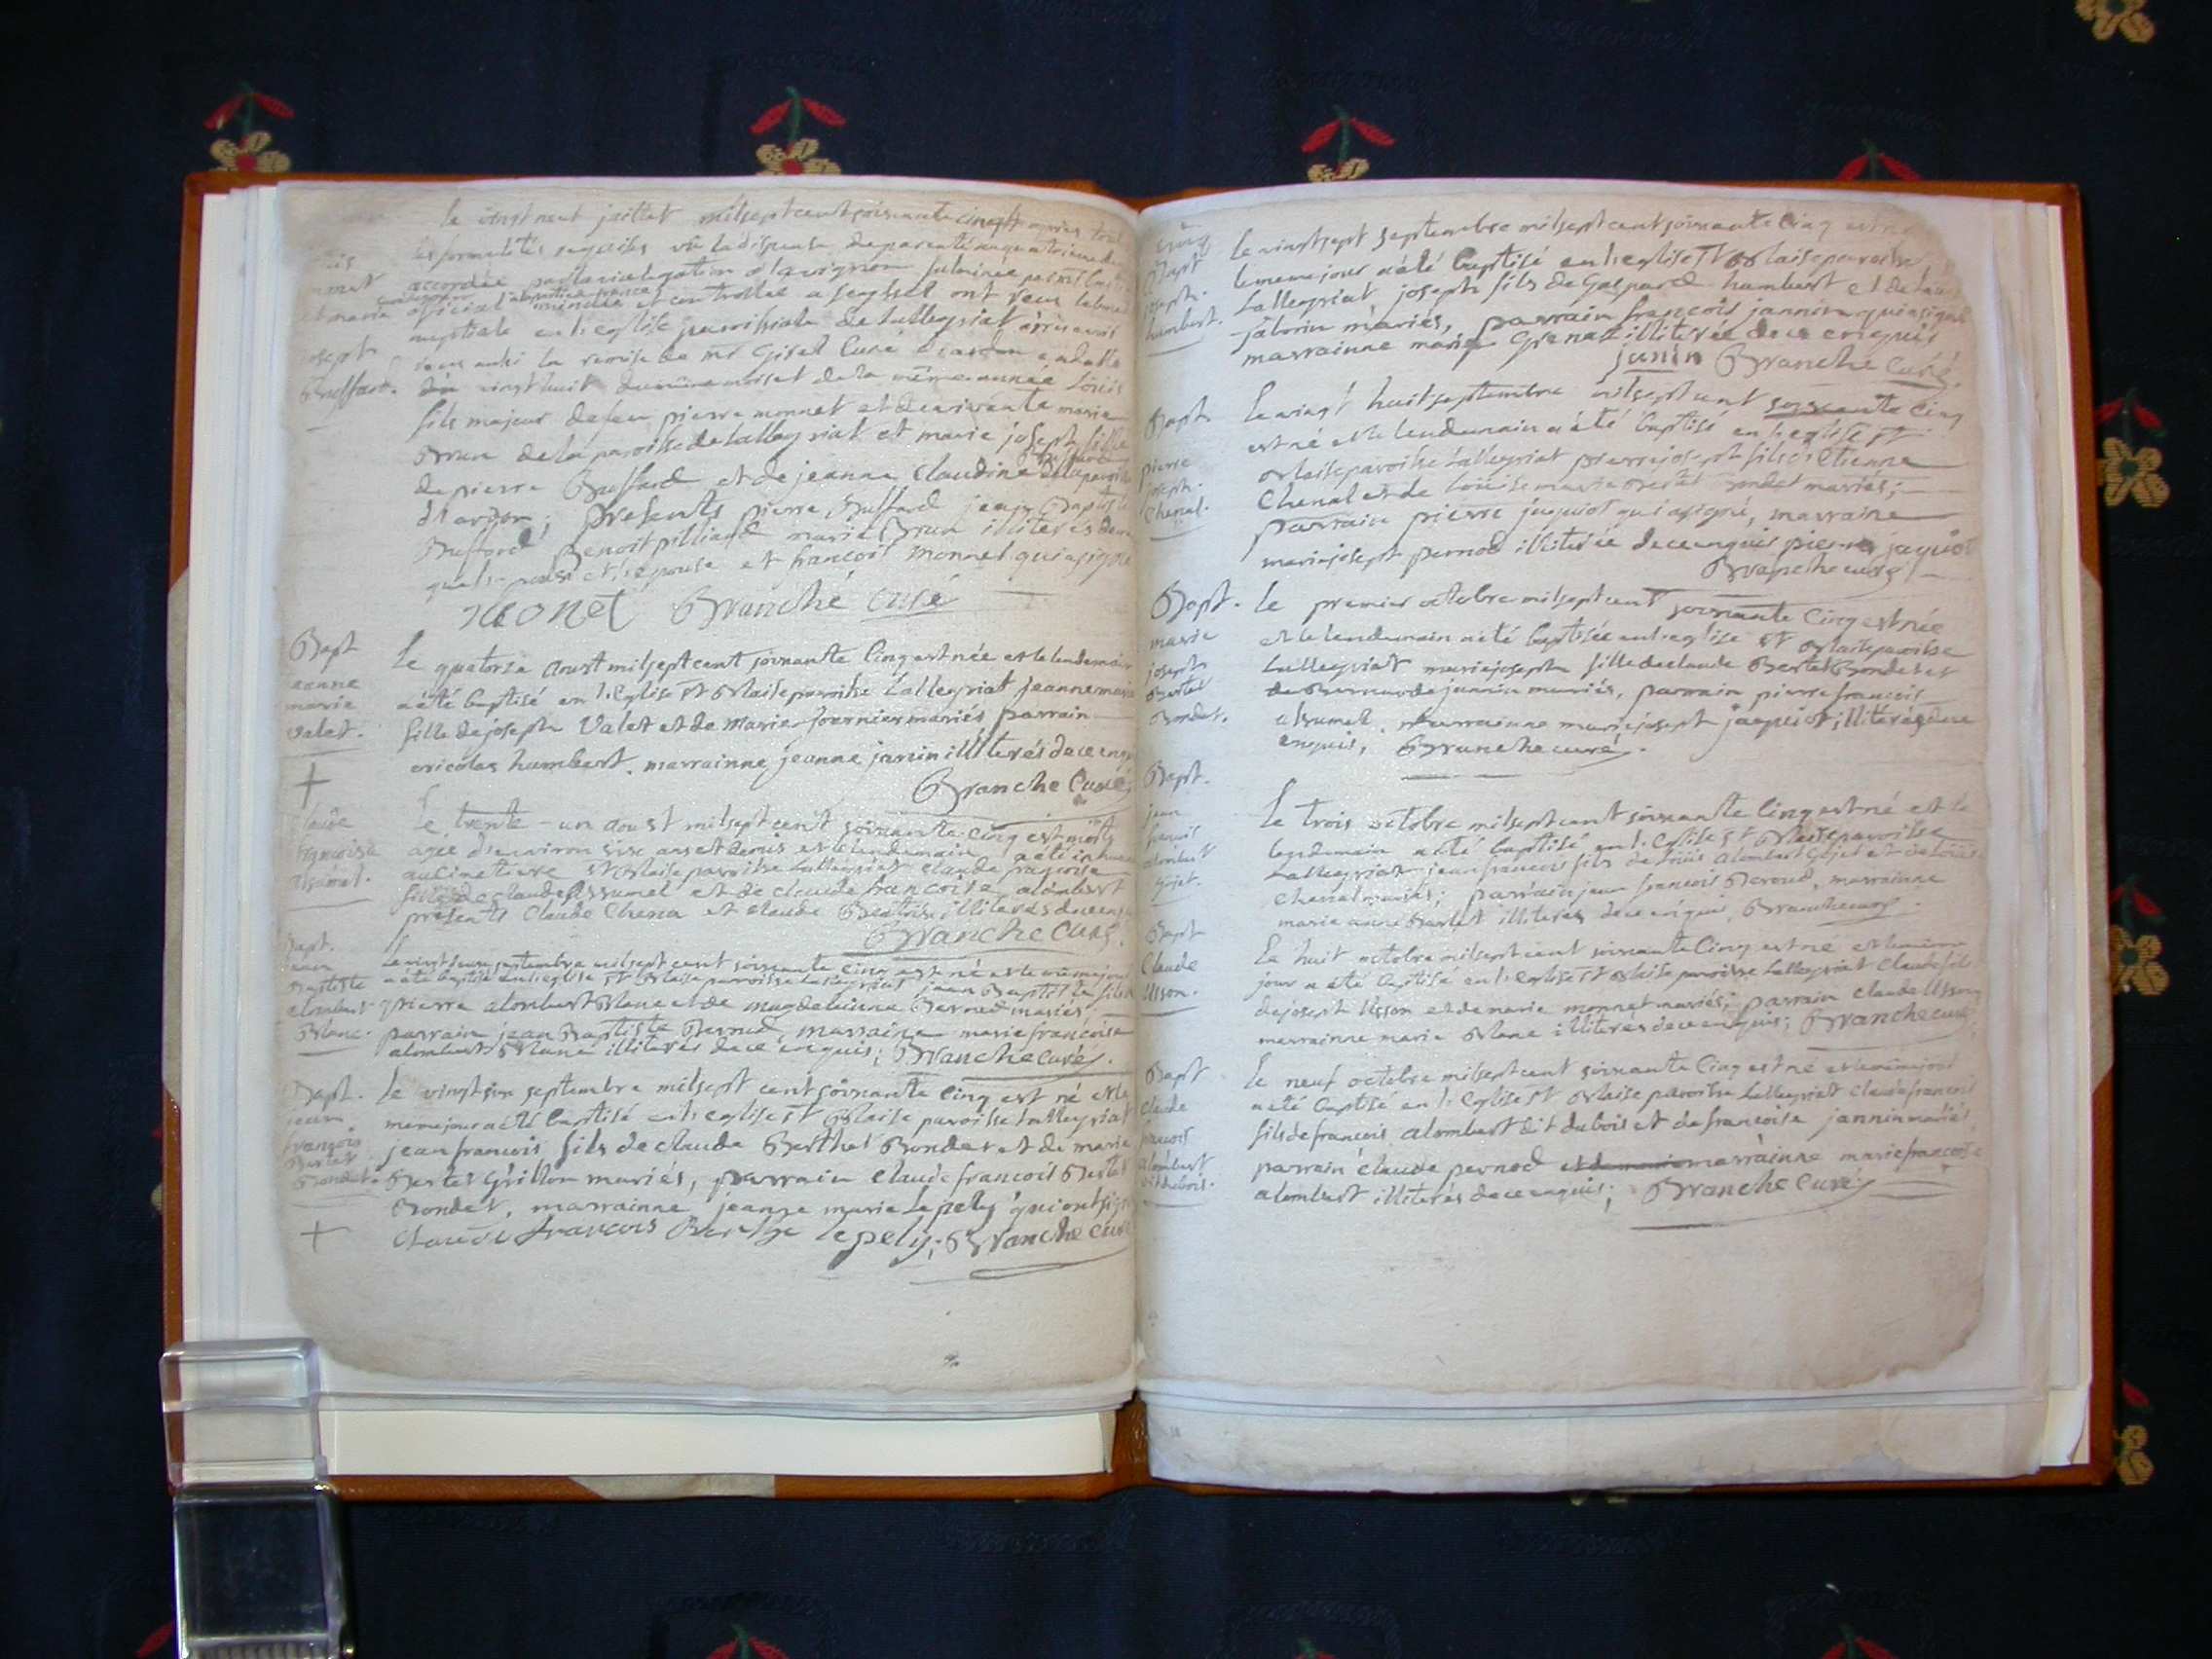 le vingt neuf juillet mil sept cent soixante cinq après
les formalités requises vû la dispense de parenté
accordée par la vicelegation d'avignon fulminée
official
nuptiale en l'eglise paroissiale de Lalleyriat
la remise de mr Girel Curé d'ardon
vingt huit du même mois et de la même année Loüis
fils majeur de feu pierre monnet et de vivante marie
Brun de la paroisse de Lalleyriat et marie joseph fille
de pierre Buffard et de jeanne Claudine
d'ardon; presents pierre Buffard jean Baptiste
Buffard Benoit pilliard marie Brun illiterés
et l'epouse et francois monnet qui a signé
monet Branche curé
Bapt
jeanne
marie
Valet.
Le quatorze aoust mil sept cent soixante Cinq est née et le lendemain
a été baptisé en l'Eglise St Blaise paroisse Lalleyriat jeanne marie
fille de joseph Valet et de marie fournier mariés, parrain
nicolas humbert, marrainne jeanne janin illiterés de ce enquis
Branche Curé
Claude
françoise
alsumel.
Le trente-un aoust mil sept cent soixante cinq est morte
agée d'environ six ans et demis et le lendemain a été inhumée
au Cimetiere St Blaise paroisse Lalleyriat Claude françoise
fille de claude alssumel et de claude francoise alombert
presents Claude Chena et claude illiterés de ce enquis
Branche Curé.
Bapt.
jean
Baptiste
alombert
Blanc.
Le vingt deux septembre mil sept cent soixante cinq est né et le même jour
a été baptisé en l'eglise St Blaise paroisse Lalleyriat jean Baptiste fils de
pierre alombert Blanc et de magdeleine Bernod mariés
parrain jean Baptiste Bernod, marraine marie francoise
alombert Blanc illiterés de ce enquis; Branche Curé.
Bapt.
jean
françois
Bertet
Bondet.
Le vingt six septembre mil sept cent soixante Cinq est né et le
meme jour a été baptisé en l'eglise St Blaise paroisse Lalleyriat
jean francois fils de claude Berthet Bondet et de marie
Bertet Grillon mariés, parrain claude francois Bertet
Bondet, marrainne jeanne marie Lepely qui ont signé
Claude francois lepely; Branche Curé
Bapt
joseph
humbert.
Le vingt sept septembre mil sept cent soixante Cinq est né
le meme jour a été baptisé en l'eglise St Blaise paroisse
Lalleyriat, joseph fils de Gaspard humbert et de
mariés, parrain françois jannin qui a signé
marrainne marie Grenat illiterée de ce enquis
janin Branche Curé.
Bapt
pierre
joseph.
Chenal.
Le vingt huit septembre mil sept cent soixante Cinq
est né et le lendemain a été baptisé en l'eglise St
Blaise paroisse Lalleyriat pierre joseph fils d'Etienne
Chenal et de Loüise marie Bondet mariés;
parrain pierre jaquiot qui a signé, marraine
marie joseph pernod illiterée de ce enquis pierre jaquiot
Branche curé
Bapt.
marie
joseph
Bertet
Bondet.
Le premier octobre mil sept cent soixante Cinq est née
et le lendemain a été baptisée en l'eglise St Blaise paroisse
Lalleyriat marie joseph fille de claude Bertet Bondet et
de Bernarde jannin mariés, parrain pierre francois
alsumel, marrainne marie joseph jaquiot, illiterés de ce
enquis, Branche curé.
Bapt.
jean
francois
alombert
Gojet.
Le trois octobre mil sept cent soixante Cinq est né et le
lendemain a été baptisé en l'Eglise St Blaise paroisse
Lalleyriat jean francois fils de Loüis alombert Gojet et de Loüise
Chenal mariés; parrain jean francois Bernod, marrainne
marie anne Bertet illiterés de ce enquis, Branche curé.
Bapt
Claude
Usson.
Le huit octobre mil sept cent soixante Cinq est né et le même
jour a été baptisé en l'Eglise St Blaise paroisse Lalleyriat Claude fils
de joseph Usson et de marie monnet mariés; parrain Claude Usson
marrainne marie Blanc illiterés de ce enquis; Branche curé
Bapt
Claude
francois
alombert
dit dubois.
Le neuf octobre mil sept cent soixante Cinq est né et le même jour
a été baptisé en l'Eglise St Blaise paroisse Lalleyriat Claude francois
fils de francois alombert dit dubois et de francoise jannin mariés
parrain claude pernod marrainne marie francoise
alombert illiterés de ce enquis; Branche Curé